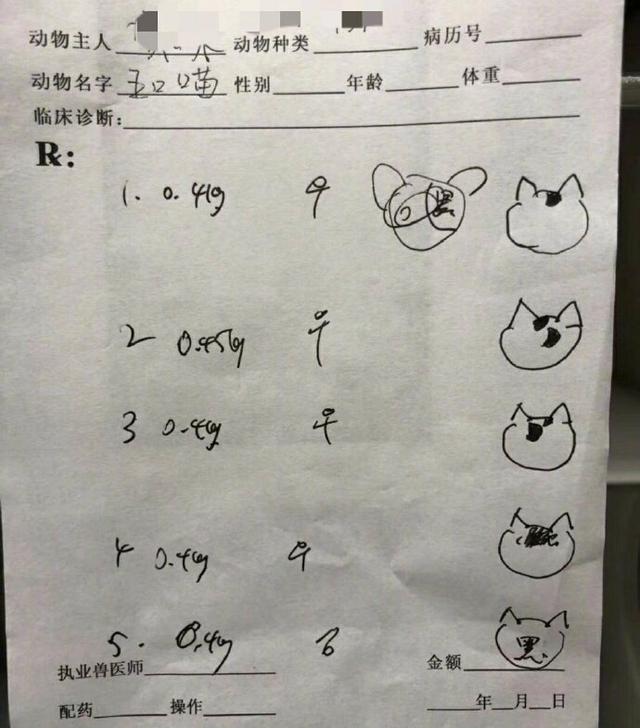 动物主人 动物种类 病历号
动物名字 五口喵 性别 年龄 体重
临床诊断:
R:
1. 0.41g ♀ 黑
2 0.45g ♀
3 0.4g ♀
4 0.4g ♀
5. 0.4g 黑
执业兽医师 金额
配药 操作 年 月 日